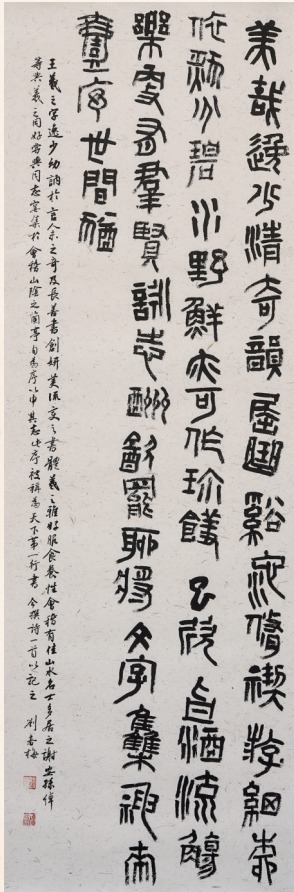 美哉逸少清奇韻幽谿脩禊游
碧水野鮮亦可作珍饈酒流觴
樂群賢詠志酬罷聊將文字集神來
序世間
王羲之字逸少幼訥於言人未之奇及長善書創妍美流變之書體羲之雅好服食養性會稽有佳山水名士多居之謝安孫綽
等與羲之同好嘗與同志宴集於會稽山陰之蘭亭自為序以申其志此序被稱為天下第一行書今撰詩一首以記之 劉春梅